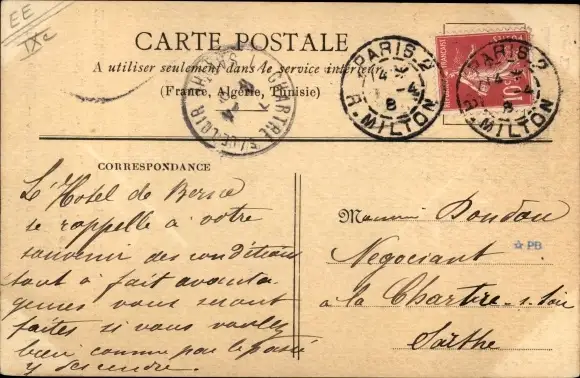 EE
IXe
CARTE POSTALE
A utiliser seulement dans le service intérieur
(France, Algérie, Tunisie)
PARIS 2
14
8
R. MILTON
PARIS 2
14
4
8
R. MILTON
LA CHARTRE S/ LE LOIR
SARTHE
10
CORRESPONDANCE
L'Hotel de Berne
se rappelle à votre
souvenir des conditions
tout à fait avanta
geuses vous seront
faites si vous voulez
bien comme par le passé
y descendre.
Monsieur Dondeau
Negociant
à la Chartre-s-Loir
Sarthe
☆ PB